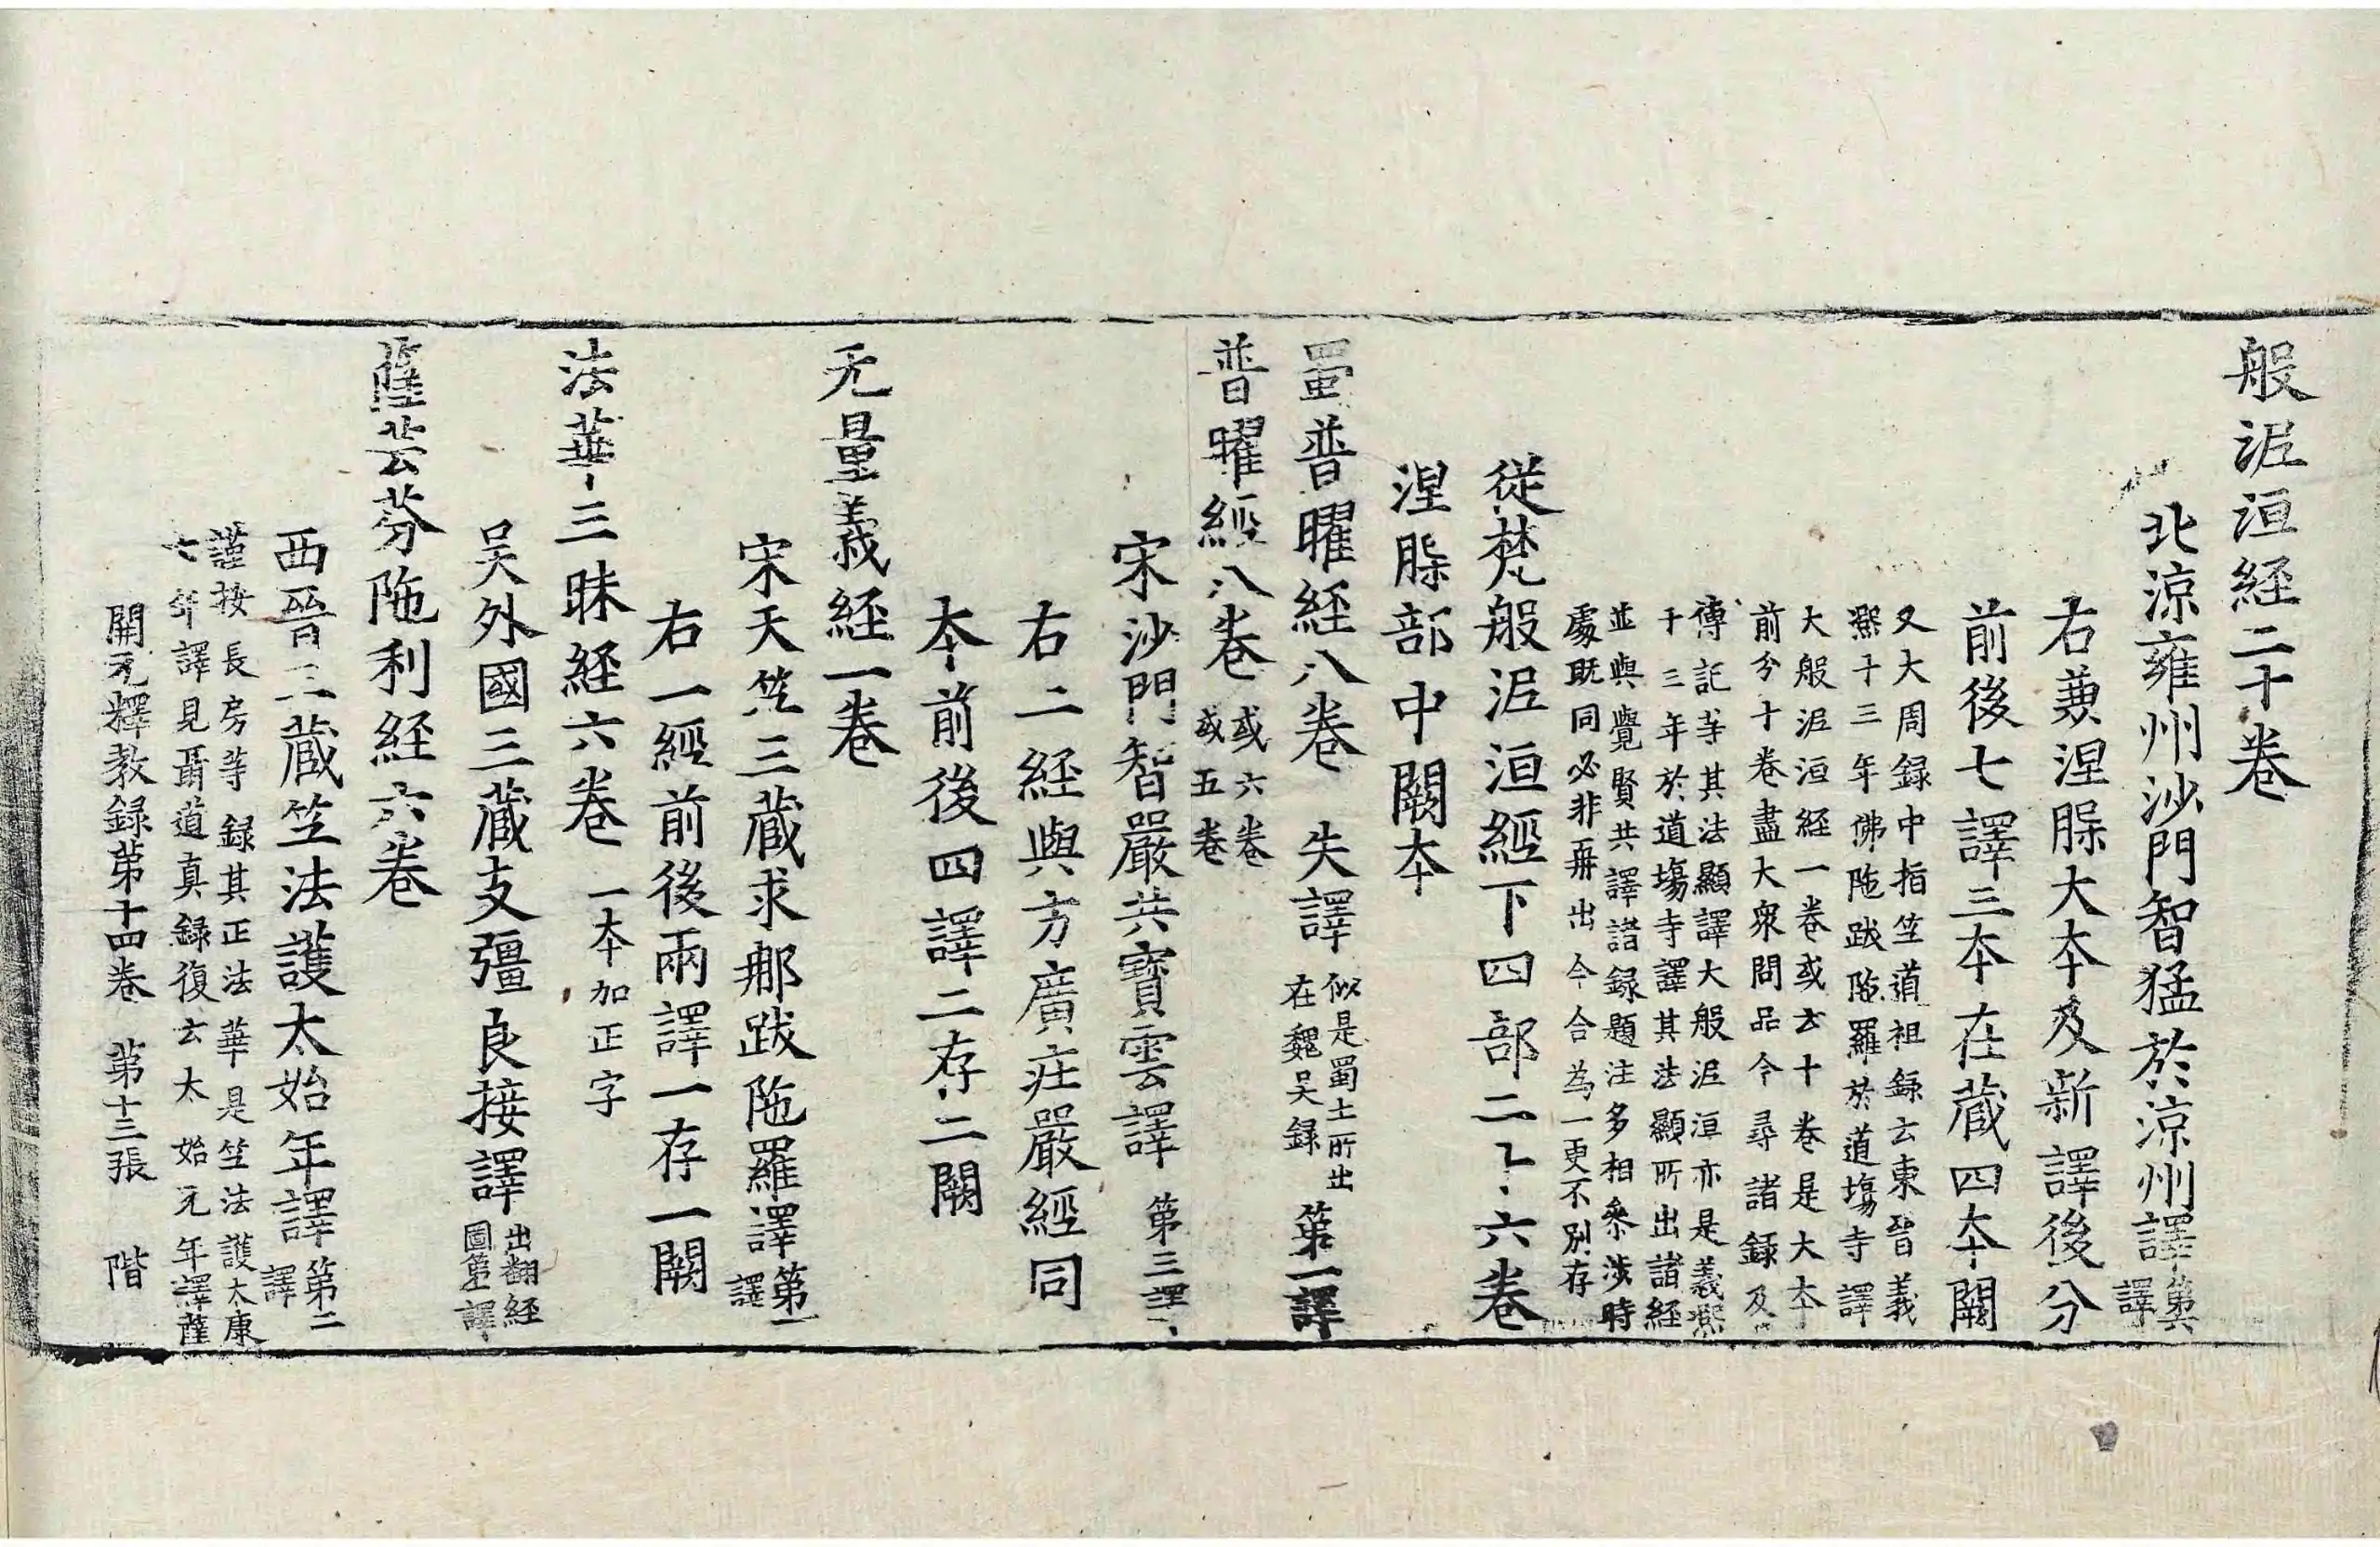 般泥洹經二十卷
北涼雍州沙門智猛於涼州譯第六譯
右兼涅槃大本及新譯後分
前後七譯三本在藏四本闕
又大周録中指竺道祖録云東晉義
熙十三年佛陁跋陁羅於道場寺譯
大般泥洹經一卷或云十卷是大本
前分十卷盡大衆問品今尋諸録及
傳記等其法顯譯大般泥洹亦是義熙
十三年於道場寺譯其法顯所出諸經
並與覺賢共譯諸録題注多相叅涉時
處既同必非再出今合為一更不別存
從梵般泥洹經下四部二十六卷
涅槃部中闕本
蜀普曜經八卷 失譯 似是蜀土所出在魏吳録 第一譯
普曜經八卷 或六卷或五卷
宋沙門智嚴共寶雲譯 第三譯
右二經與方廣莊嚴經同
本前後四譯二存二闕
无量義經一卷
宋天竺三藏求那跋陁羅譯第一譯
右一經前後兩譯一存一闕
法華三昧經六卷 一本加正字
吳外國三藏支彊良接譯 出翻經圖第一譯
薩芸芬陁利經六卷
西晉三藏竺法護太始年譯第二譯
謹按長房等録其正法華是竺法護太康
七年譯見聶道真録復云太始元年譯薩
開元釋教録第十四卷 第十三張 階